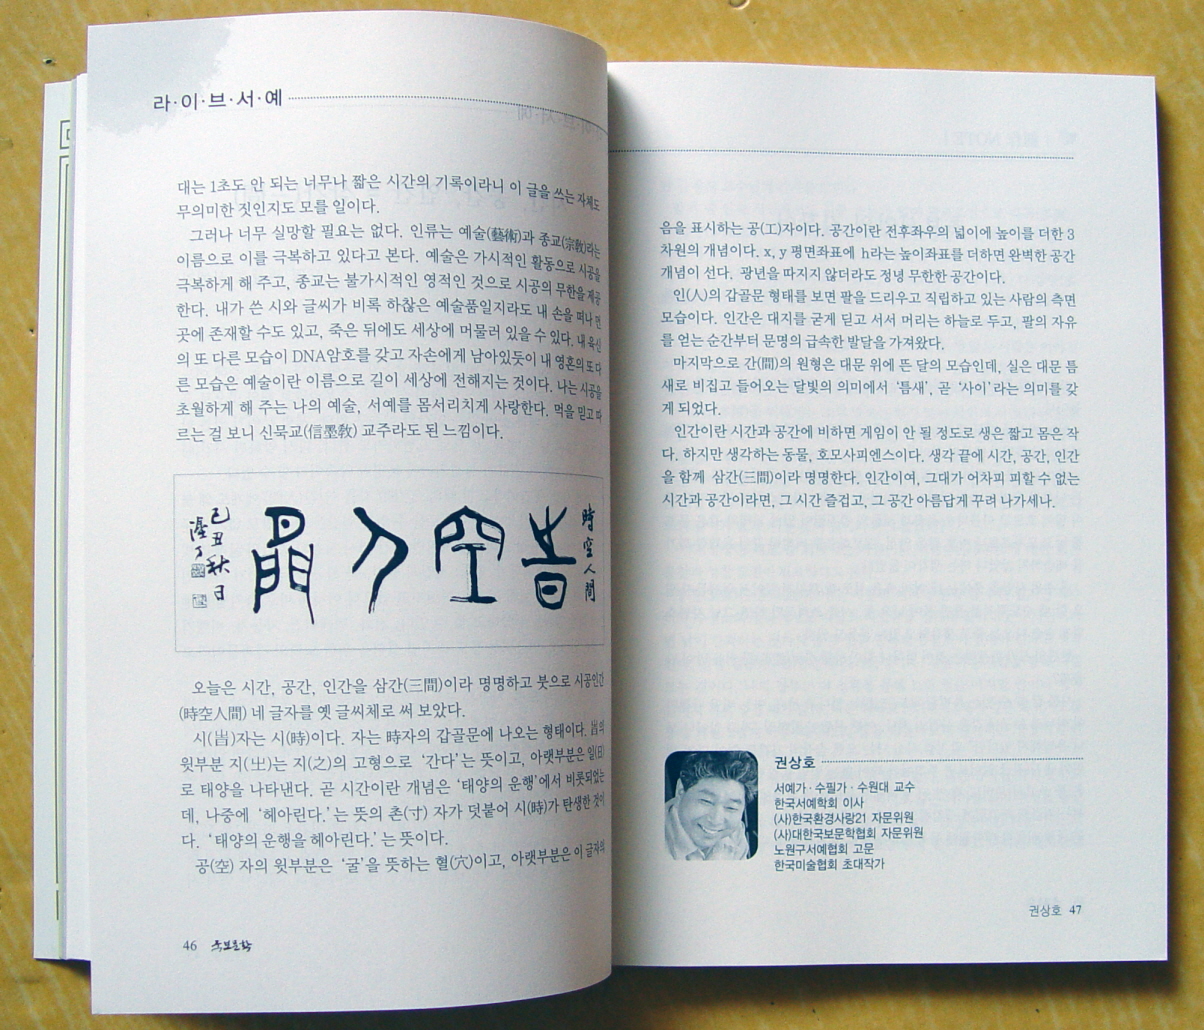 라·이·브·서·예
대는 1초도 안 되는 너무나 짧은 시간의 기록이라니 이 글을 쓰는 자체도
무의미한 짓인지도 모를 일이다.
그러나 너무 실망할 필요는 없다. 인류는 예술(藝術)과 종교(宗敎)라는
이름으로 이를 극복하고 있다고 본다. 예술은 가시적인 활동으로 시공을
극복하게 해 주고, 종교는 불가시적인 영적인 것으로 시공의 무한을 제공
한다. 내가 쓴 시와 글씨가 비록 하찮은 예술품일지라도 내 손을 떠나 먼
곳에 존재할 수도 있고, 죽은 뒤에도 세상에 머물러 있을 수 있다. 내 육신
의 또 다른 모습이 DNA암호를 갖고 자손에게 남아있듯이 내 영혼의 또 다
른 모습은 예술이란 이름으로 길이 세상에 전해지는 것이다. 나는 시공을
초월하게 해 주는 나의 예술, 서예를 몸서리치게 사랑한다. 먹을 믿고 따
르는 걸 보니 신묵교(信墨敎) 교주라도 된 느낌이다.
時空人間
旹空人間
己丑秋日
오늘은 시간, 공간, 인간을 삼간(三間)이라 명명하고 붓으로 시공인간
(時空人間) 네 글자를 옛 글씨체로 써 보았다.
시(旹)자는 시(時)이다. 자는 時자의 갑골문에 나오는 형태이다. 旹의
윗부분 지(㞢)는 지(之)의 고형으로 '간다'는 뜻이고, 아랫부분은 일(日)
로 태양을 나타낸다. 곧 시간이란 개념은 '태양의 운행'에서 비롯되었는
데, 나중에 '헤아린다.'는 뜻의 촌(寸) 자가 덧붙어 시(時)가 탄생한 것이
다. '태양의 운행을 헤아린다.'는 뜻이다.
공(空) 자의 윗부분은 '굴'을 뜻하는 혈(穴)이고, 아랫부분은 이 글자의
46 국보문학
음을 표시하는 공(工)자이다. 공간이란 전후좌우의 넓이에 높이를 더한 3
차원의 개념이다. x, y 평면좌표에 h라는 높이좌표를 더하면 완벽한 공간
개념이 선다. 광년을 따지지 않더라도 정녕 무한한 공간이다.
인(人)의 갑골문 형태를 보면 팔을 드리우고 직립하고 있는 사람의 측면
모습이다. 인간은 대지를 굳게 딛고 서서 머리는 하늘로 두고, 팔의 자유
를 얻는 순간부터 문명의 급속한 발달을 가져왔다.
마지막으로 간(間)의 원형은 대문 위에 뜬 달의 모습인데, 실은 대문 틈
새로 비집고 들어오는 달빛의 의미에서 '틈새', 곧 '사이'라는 의미를 갖
게 되었다.
인간이란 시간과 공간에 비하면 게임이 안 될 정도로 생은 짧고 몸은 작
다. 하지만 생각하는 동물, 호모사피엔스이다. 생각 끝에 시간, 공간, 인간
을 함께 삼간(三間)이라 명명한다. 인간이여, 그대가 어차피 피할 수 없는
시간과 공간이라면, 그 시간 즐겁고, 그 공간 아름답게 꾸려 나가세나.
권상호
서예가·수필가·수원대 교수
한국서예학회 이사
(사)한국환경사랑21 자문위원
(사)대한국보문학협회 자문위원
노원구서예협회 고문
한국미술협회 초대작가
권상호 47